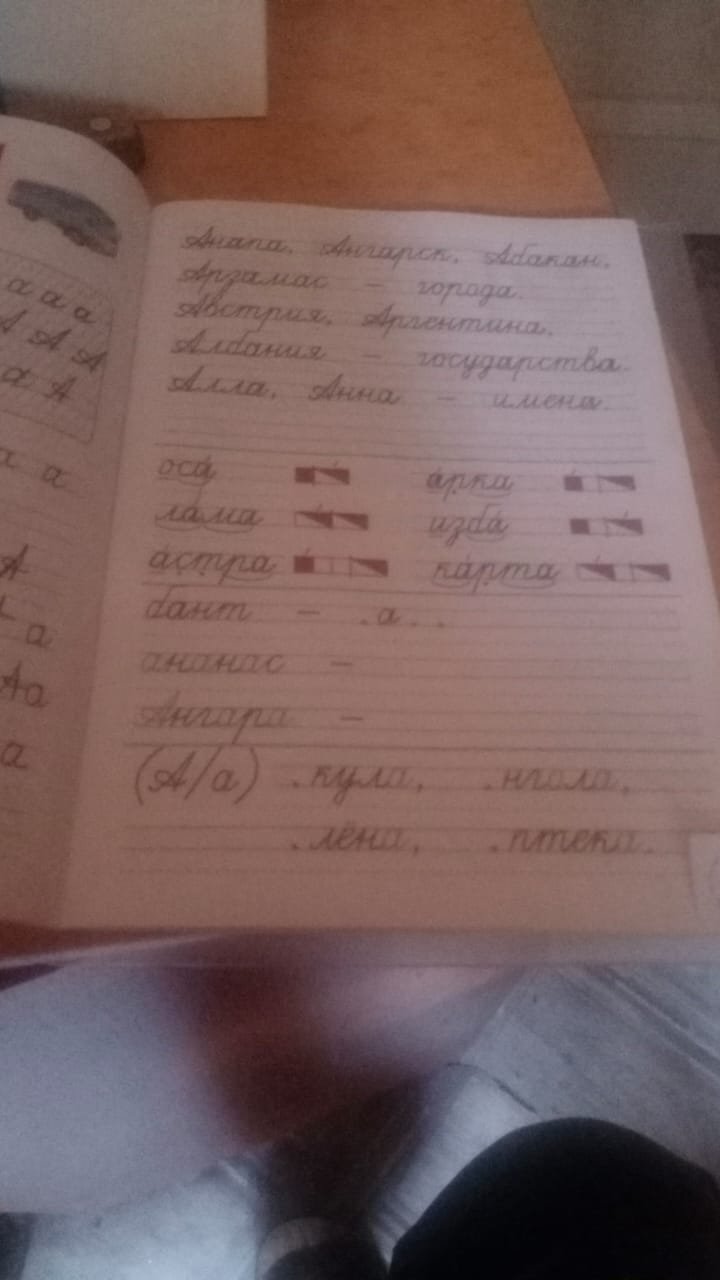 а а а
А А А
а А
а а
А
а
Аа
а
Анапа, Ангарск, Абакан,
Арзамас – города.
Австрия, Аргентина,
Албания – государства.
Алла, Анна – имена.
оса́ а́рка
ла́ма изба́
а́стра ка́рта
бант – .а..
ананас –
Ангара –
(А/а) .кула, .нгола,
.лёна, .птека.